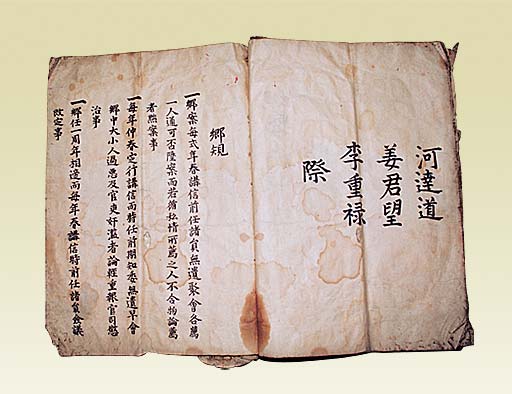 河達道
姜君望
李重禄
際
鄉規
一鄉案每式年春講信前任諸員無遺聚會各薦
一人通可否陞案而若循私情所薦之人不合物論薦
者黜案事
一每年仲春定行講信而時任前期知委無遺早會
鄉中大小人過惡及官吏奸濫者論輕重報官司懲
治事
一鄉任一周年相遞而每年春講信時前任諸員僉議
改定事